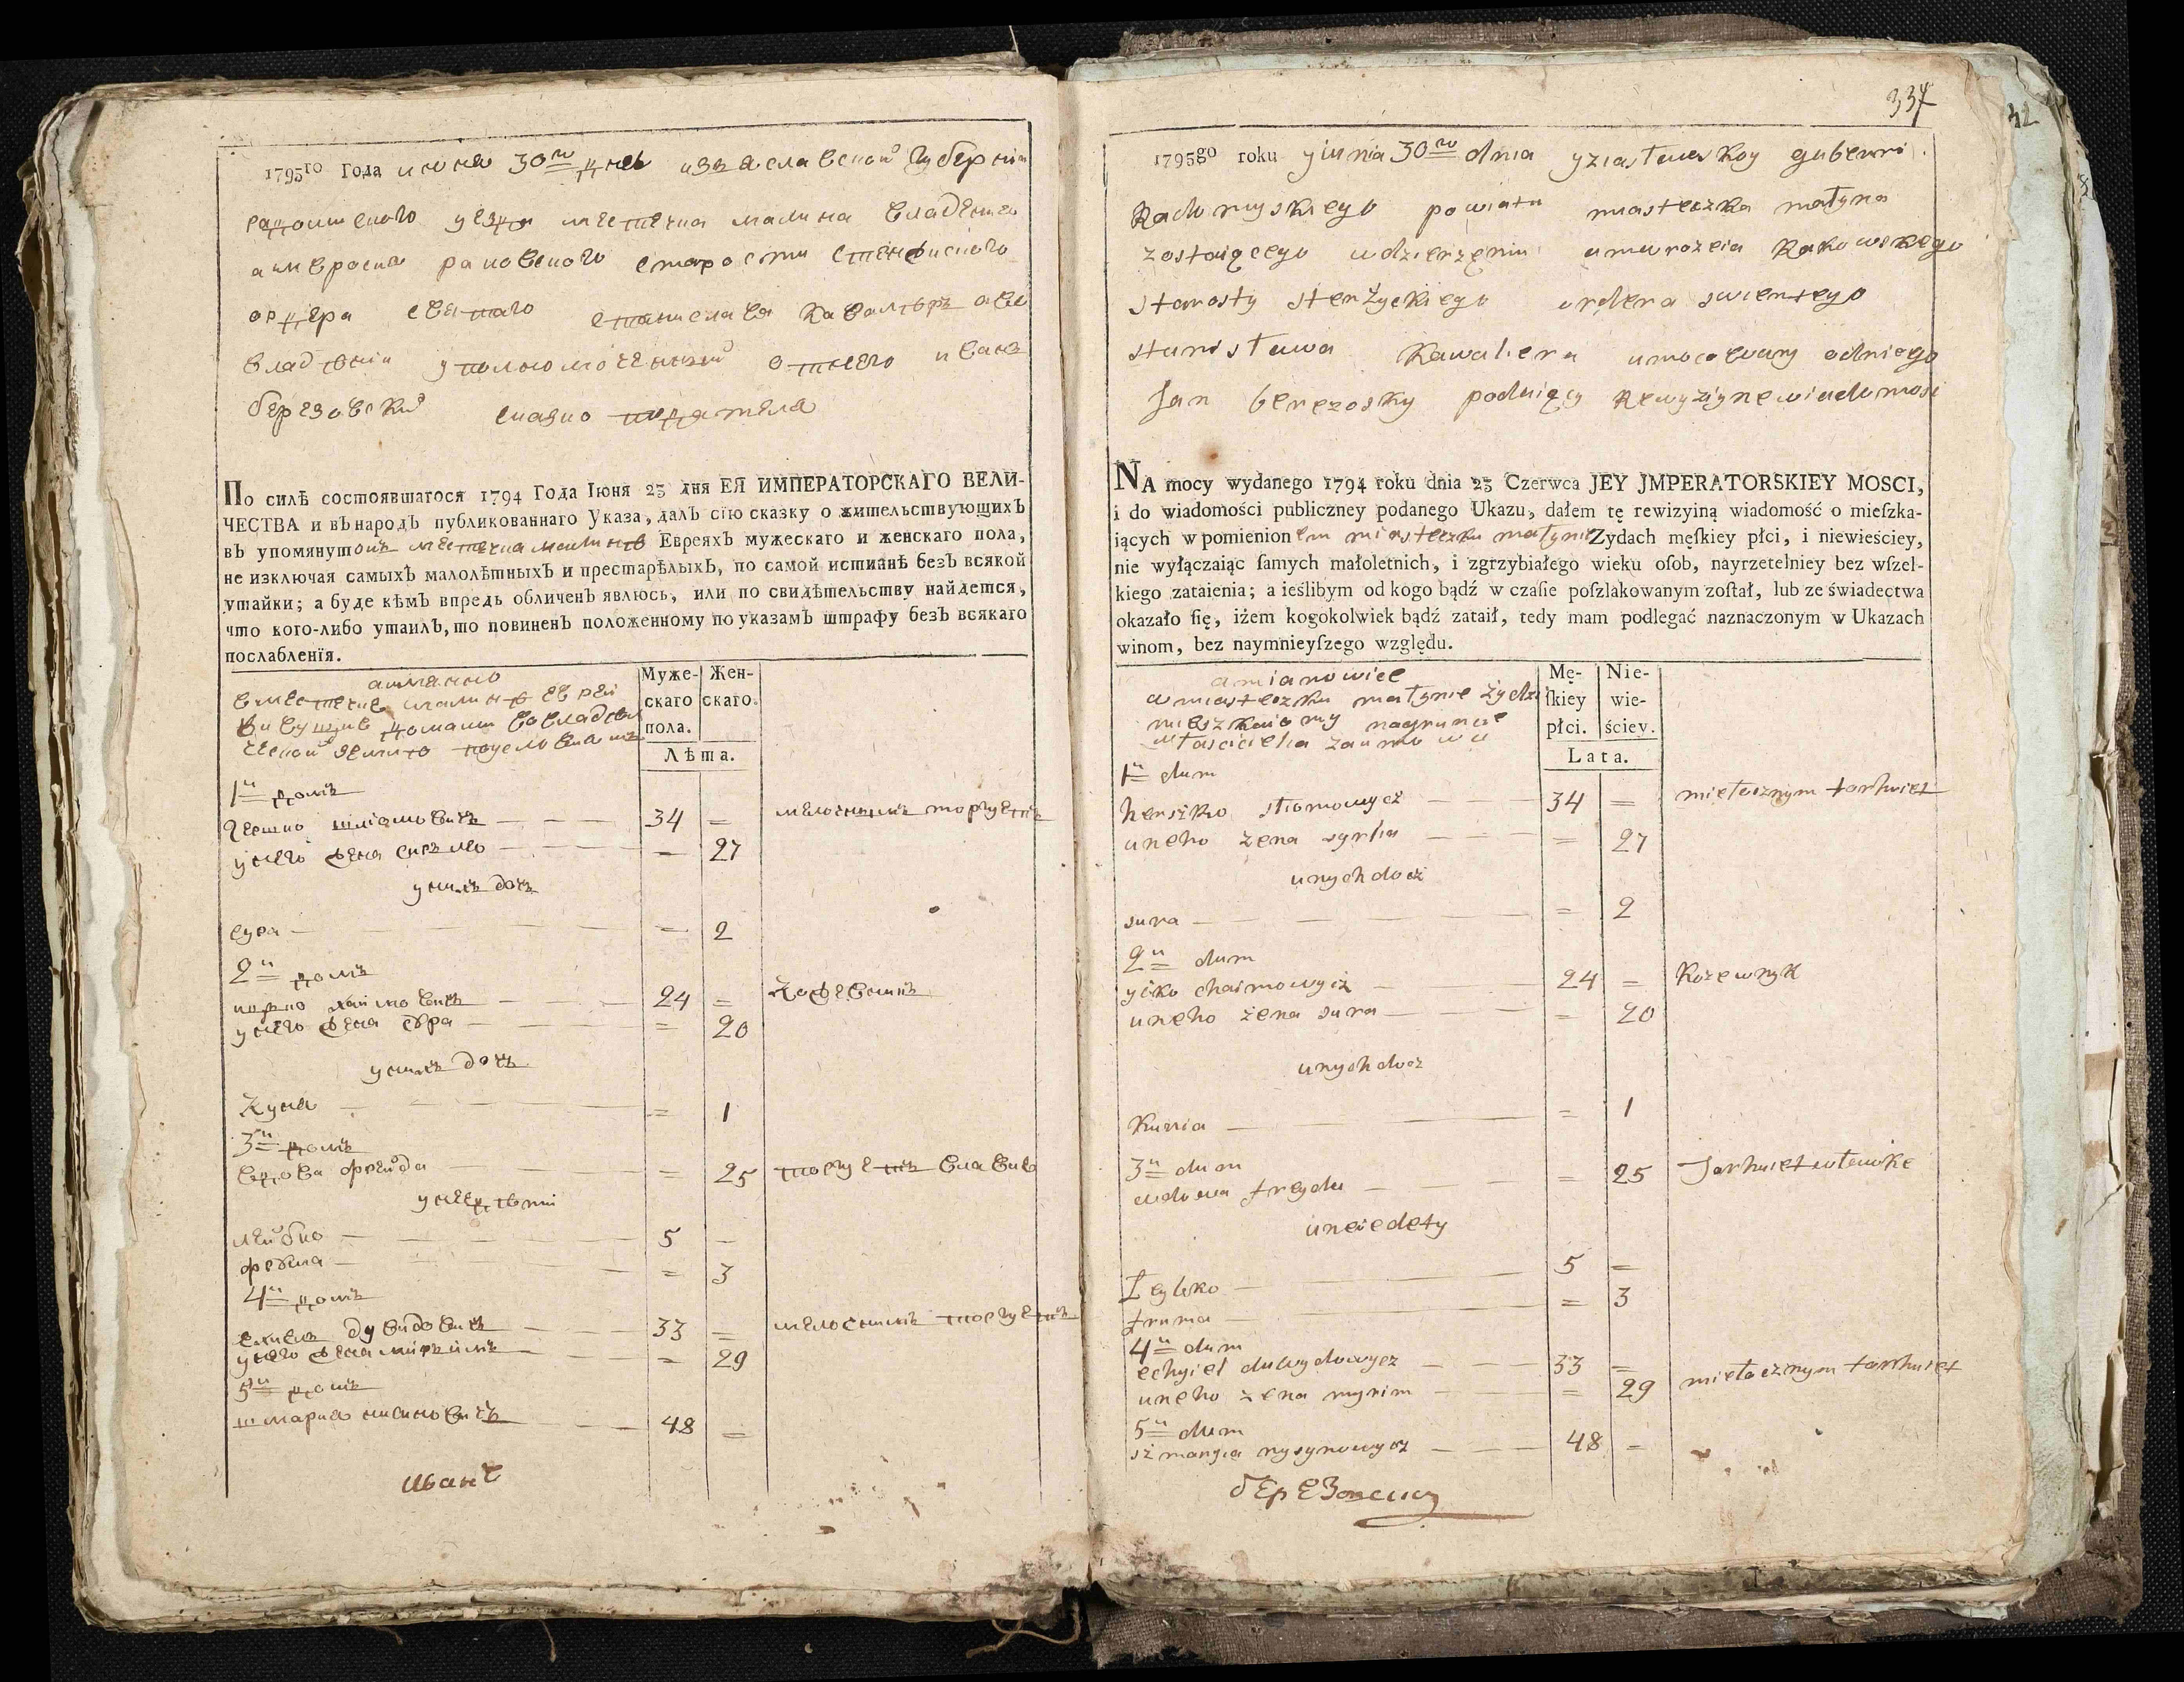 1795го Года июня 30го дня изяславской губернии
радомиского уезда местечка малина владения
амвросия раковского старости стенжиского
ордера святаго станислава кавалера
владения уполномоченний от него иванъ
березовский сказко податель
По силѣ состоявшагося 1794 Года Іюня 23 дня ЕЯ ИМПЕРАТОРСКАГО ВЕЛИ-
ЧЕСТВА и въ народъ публикованнаго Указа, далъ сію сказку о жительствующихъ
въ упомянутомъ местечка малинѣ Евреяхъ мужескаго и женскаго пола,
не изключая самыхъ малолѣтныхъ и престарѣлыхъ, по самой истинѣ безъ всякой
утайки; а буде кѣмъ впредь обличенъ явлюсь, или по свидѣтельству найдется,
что кого-либо утаилъ, то повиненъ положенному по указамъ штрафу безъ всякаго
послабленія.
а имянно
в местечке малинѣ еврей
домами во владел
Муже- Жен-
скаго скаго.
пола.
Лѣта.
1й домъ
гершко шліомовичъ — — — 34 = мелочнымъ торгуетъ
у него жена сирле — — — = 27
у нихъ дочъ
сура — — — = 2
2й домъ
ицко хаимовичъ — — — 24 = кожевникъ
у него жена сура — — — = 20
у нихъ дочъ
куня — — — = 1
3й домъ
вдова фрейда — — — = 25 торгуетъ
у нее дѣти
лейбко — — — 5 =
фрума — — — = 3
4й домъ
ехиель дувидовичъ — — — 33 = мелочнымъ торгуетъ
у него жена миримъ — — — = 29
5й домъ
шмария нисиновичъ — — — 48 =
Иванъ
337
1795go roku yiunia 30go dnia yziasławskoy guberni
Radomyskiego powiatu miasteczka małyna
zostaiącego wdzierzęniu amwrozeia Rakowskiego
starosty stenżyckiego ordera swientego
stanisława Kawalera umocowany odniego
Jan berezosky podaiący Rewyziynewiadomosi
NA mocy wydanego 1794 roku dnia 23 Czerwca JEY JMPERATORSKIEY MOSCI,
i do wiadomości publiczney podanego Ukazu, dałem tę rewizyiną wiadomość o mieſzka-
iących w pomienionem miasteczku małynie Zydach męſkiey płci, i niewieściey,
nie wyłączaiąc ſamych małoletnich, i zgrzybiałego wieku oſob, nayrzetelniey bez wſzel-
kiego zataienia; a ieślibym od kogo bądź w czaſie poſzlakowanym zoſtał, lub ze świadectwa
okazało ſię, iżem kogokolwiek bądź zataił, tedy mam podlegać naznaczonym w Ukazach
winom, bez naymnieyſzego względu.
amianowice
wmiasteczku małynie żydzi
mieszkaiomy nagruncie
własciciela
Mę- Nie-
ſkiey wie-
płci. ściey.
Lata.
1й dum
herszko sliomowycz — — — 34 = miełocznym torhuiet
uneho żena syrla — — — = 27
unych docz
sura — — — = 2
2й dum
ycko chaimowycz — — — 24 = Kożewnyk
uneho żena sura — — — = 20
unych docz
kunia — — — = 1
3й dum
wdowa freyda — — — = 25 Torhuiet
uneie dety
Leybko — — — 5 =
fruma — — — = 3
4й dum
echyiel duwydowycz — — — 33 = miełocznym torhuiet
uneho żena myrim — — — = 29
5й dum
szmaryia nysynowycz — — — 48 =
березовски